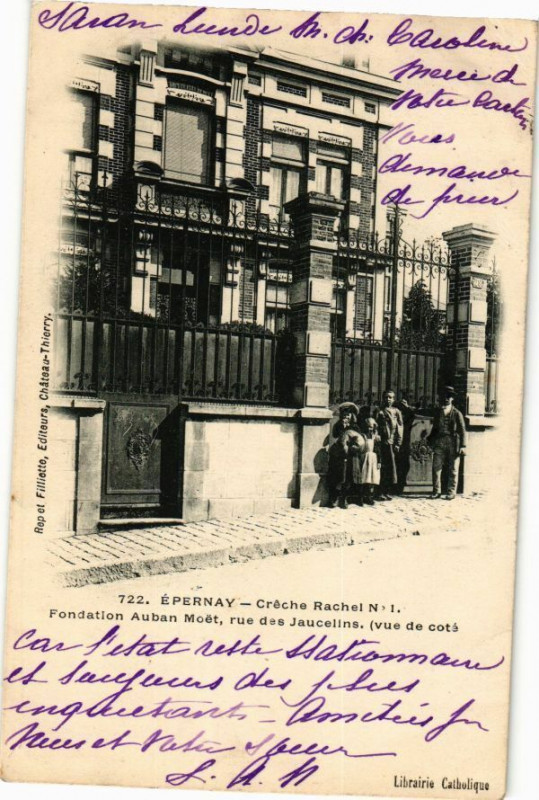 Saran Lunde M. ch. Caroline
Merci de
Votre Carte
Vous
demande
de prier
Rep et Filliette, Editeurs, Château-Thierry.
722. ÉPERNAY — Crêche Rachel No 1.
Fondation Auban Moët, rue des Jaucelins. (vue de coté
Car l'etat reste Stationnaire
et toujours des plus
inquietants - Amitiés pr
Vous et Votre Sœur
Librairie Catholique